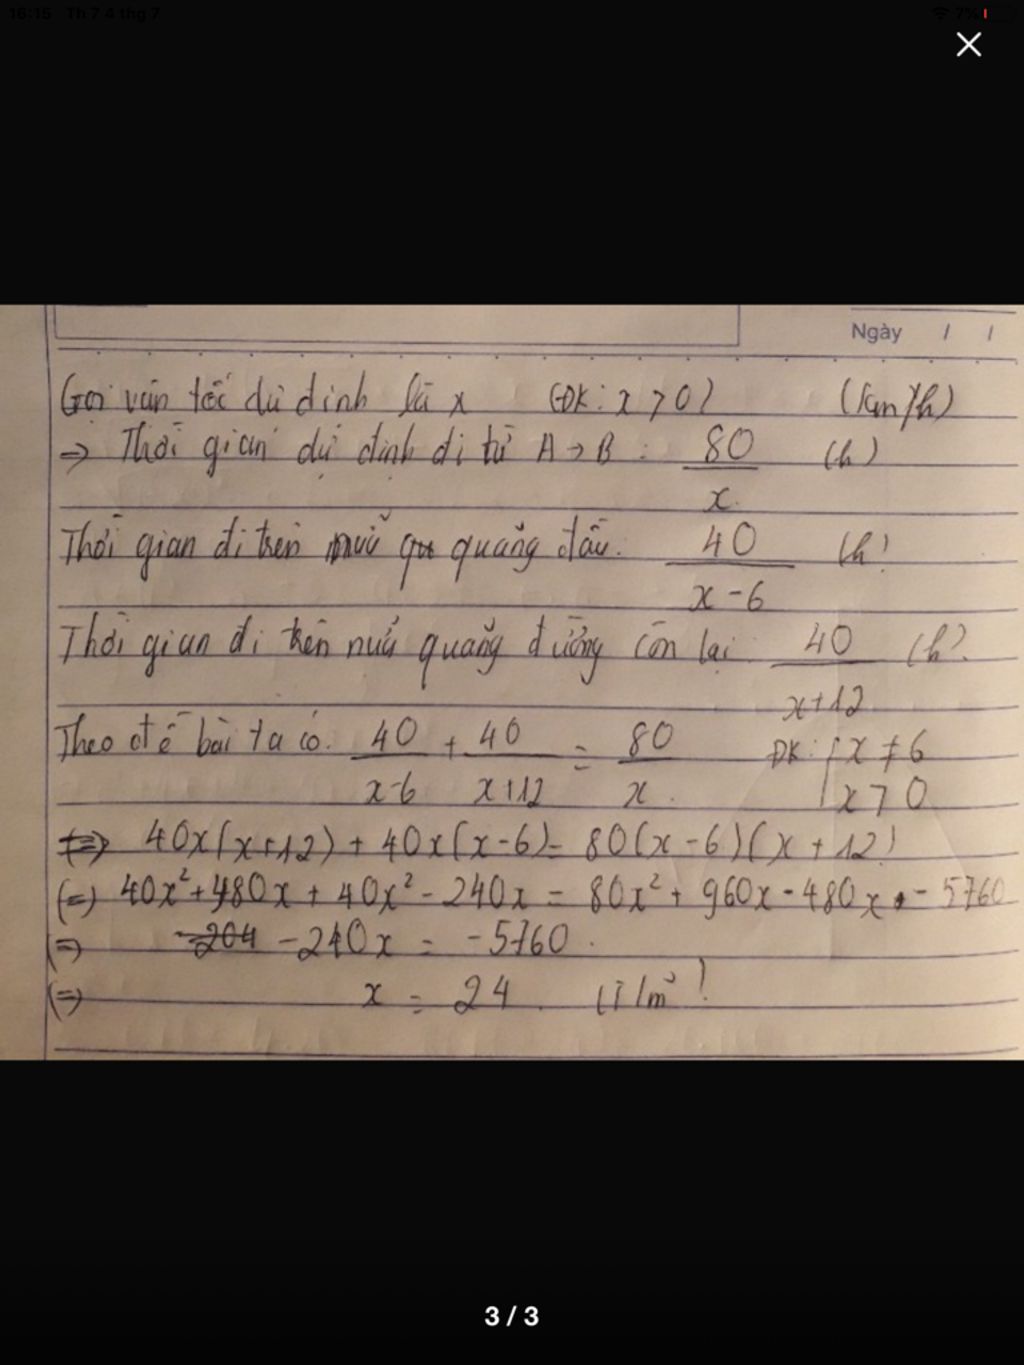 16:15 Th 7 4 thg 7 7%
Ngày / /
Gọi vận tốc dự định là x (ĐK: x > 0) (km/h)
=> Thời gian dự định đi từ A → B: 80/x (h)
Thời gian đi trên nửa quãng đầu: 40/(x-6) (h)
Thời gian đi trên nửa quãng đường còn lại: 40/(x+12) (h)
Theo đề bài ta có: 40/(x-6) + 40/(x+12) = 80/x ĐK: { x ≠ 6
x > 0
<=> 40x(x+12) + 40x(x-6) = 80(x-6)(x+12)
<=> 40x² + 480x + 40x² - 240x = 80x² + 960x - 480x - 5760
<=> -240x = -5760
<=> x = 24 (T/m)
3 / 3